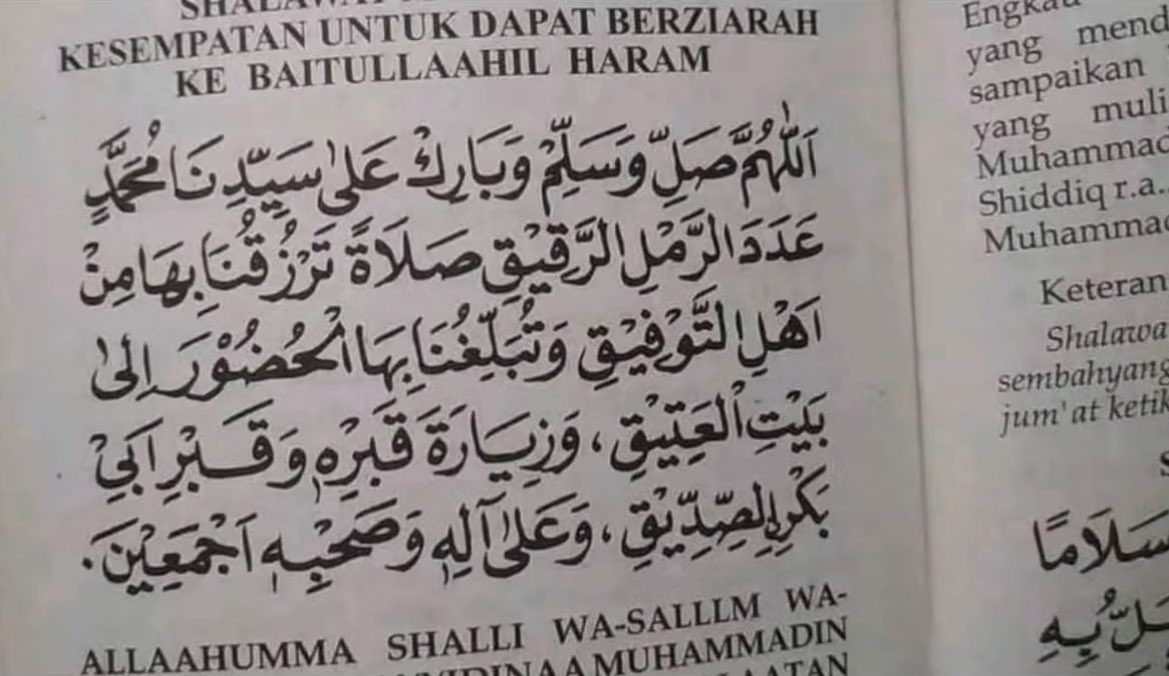 KESEMPATAN UNTUK DAPAT BERZIARAH
KE BAITULLAAHIL HARAM
اَللّٰهُمَّ صَلِّ وَسَلِّمْ وَبَارِكْ عَلٰى سَيِّدِنَا مُحَمَّدٍ
عَدَدَ الرَّمْلِ الرَّقِيْقِ صَلَاةً تَرْزُقُنَا بِهَا مِنْ
اَهْلِ التَّوْفِيْقِ وَتُبَلِّغُنَا بِهَا الْحُضُوْرَ اِلٰى
بَيْتِ الْعَتِيْقِ، وَزِيَارَةَ قَبْرِهٖ وَقَبْرِ اَبِيْ
بَكْرِ الصِّدِّيْقِ، وَعَلٰى آلِهٖ وَصَحْبِهٖ اَجْمَعِيْنَ.
ALLAAHUMMA SHALLI WA-SALLLM WA-
MUHAMMADIN
Engkau
yang
sampaikan
yang
Muhammad
Shiddiq r.a.
Muhammad
Shalawa
sembahyang
jum'at
سَلَامًا
بِهِ